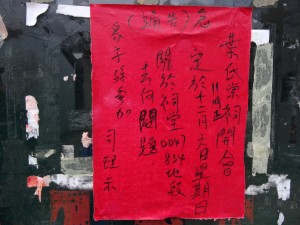 葉氏宗祠開會
11時正
定於十二月六日星期四
(通告)
關於祠堂
0047
854地段
去向問題
各子孫參加
司理示